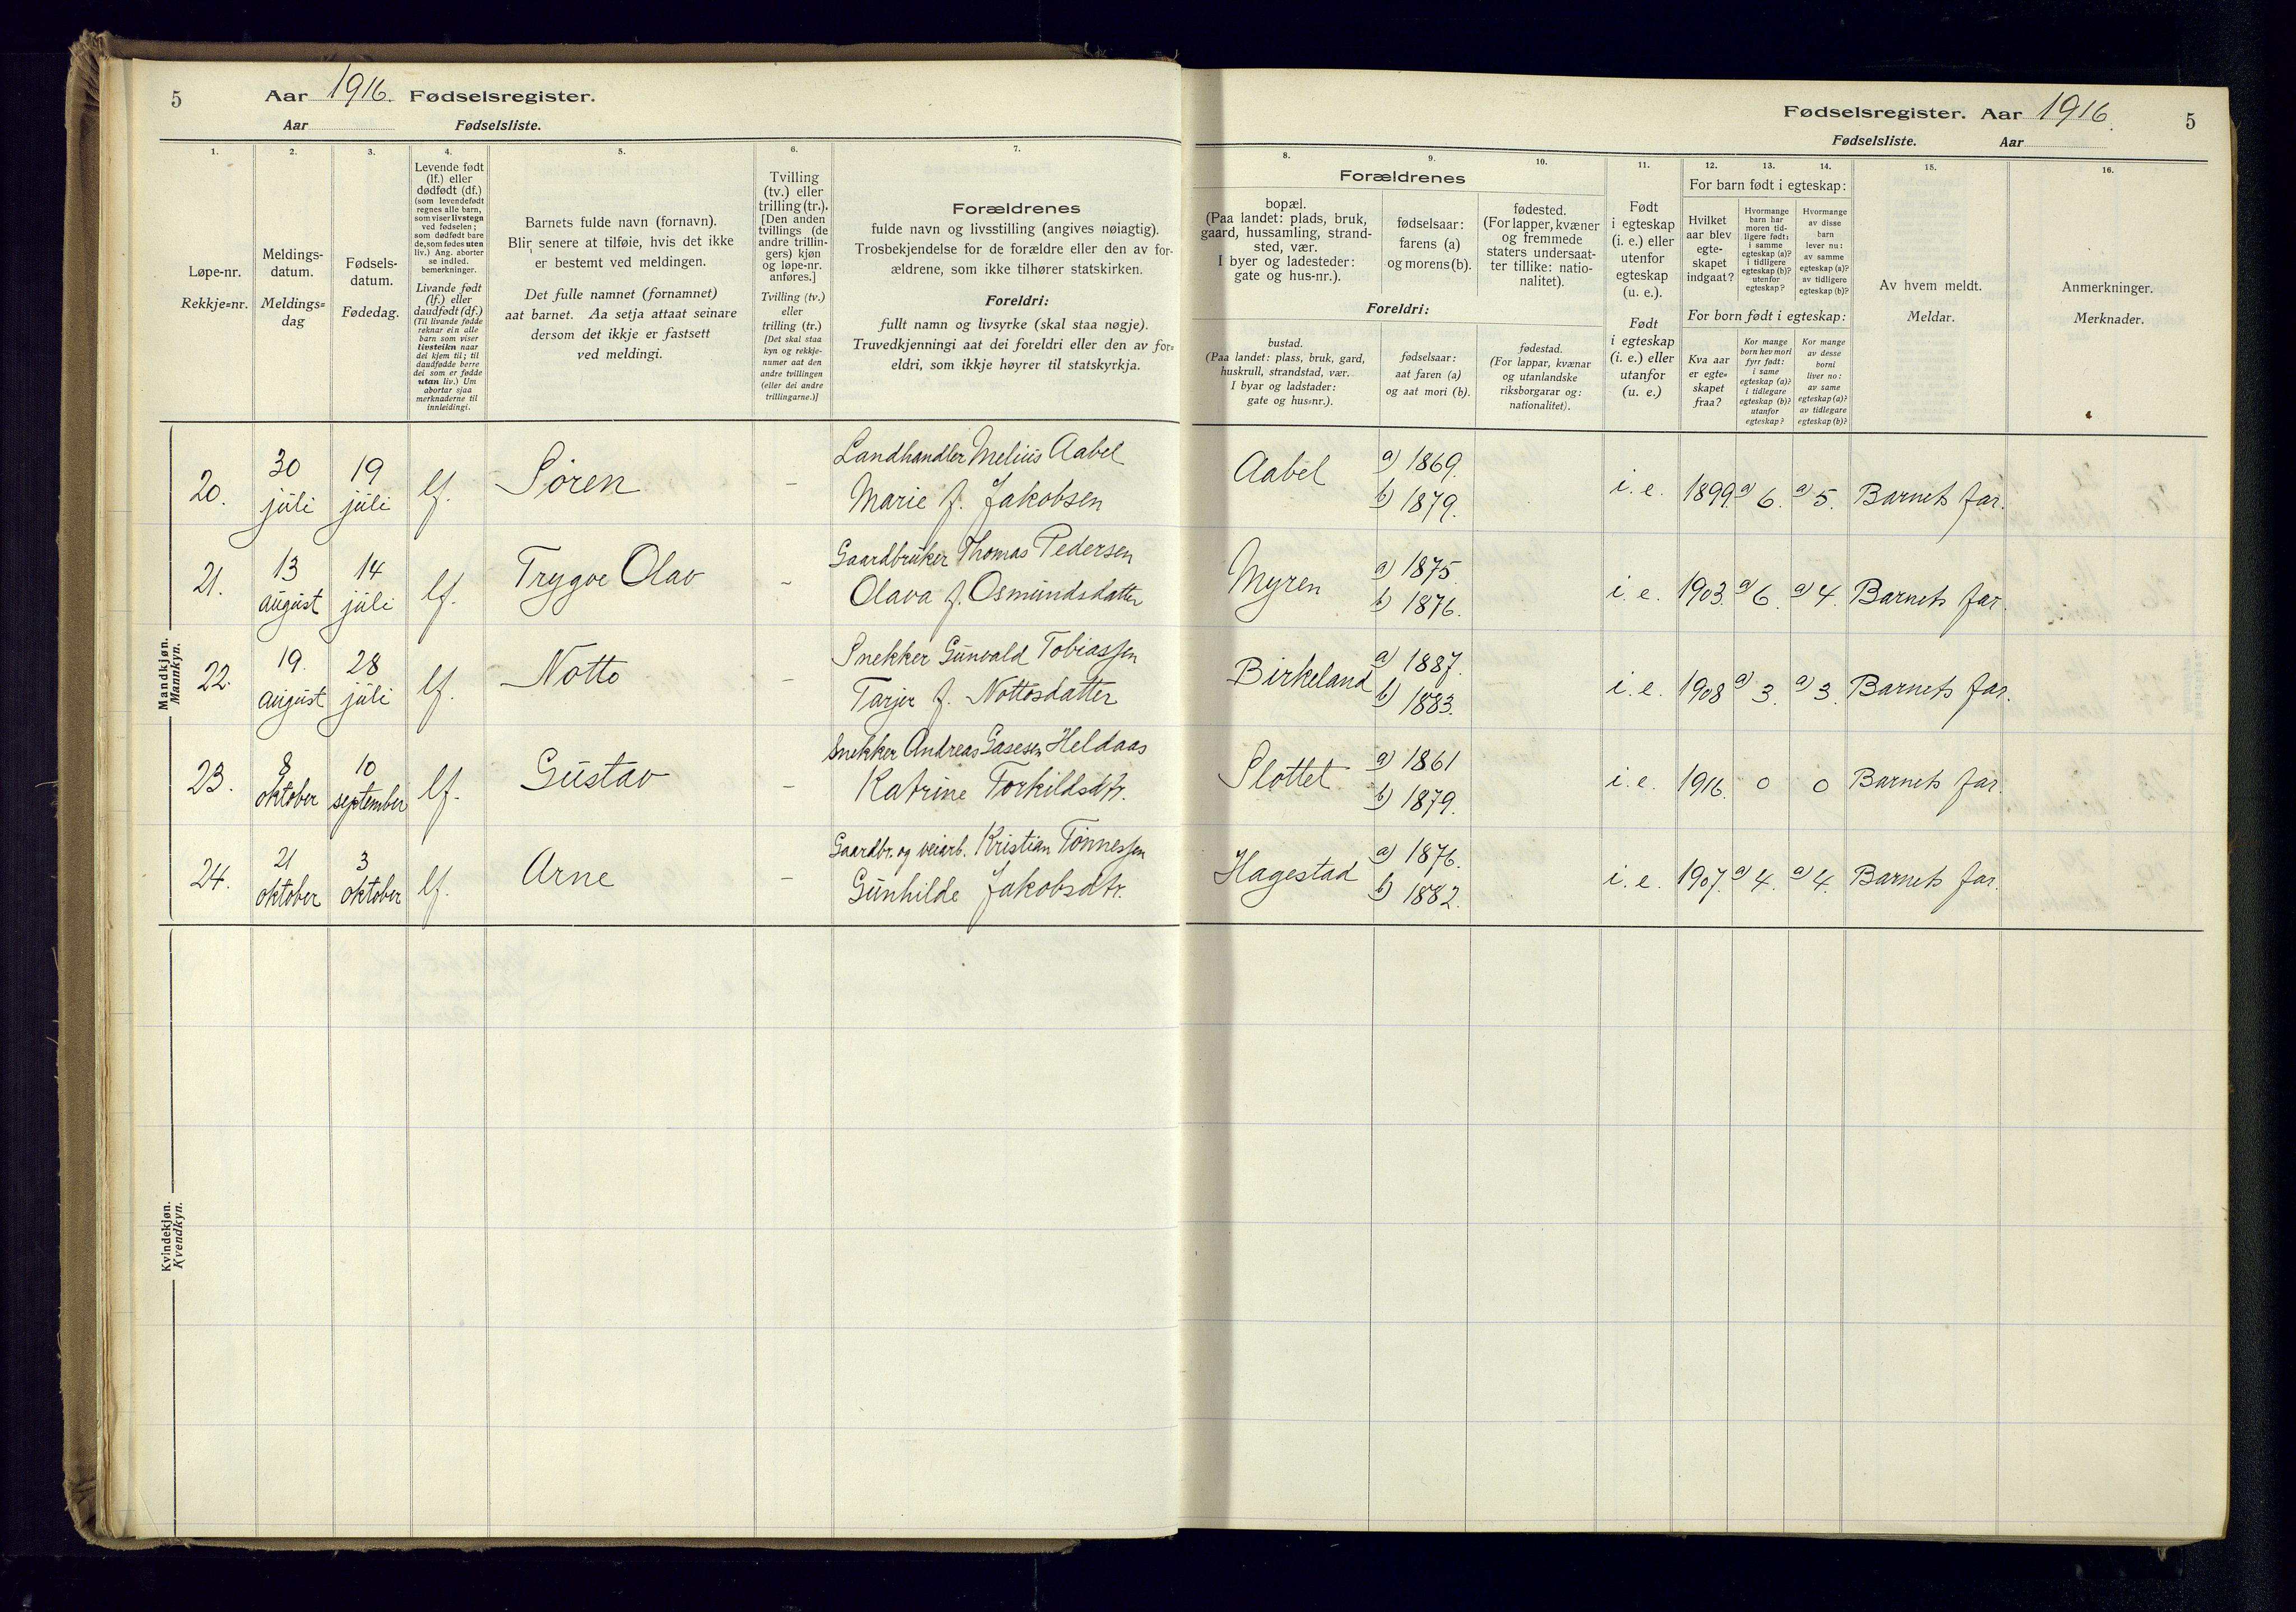 5
Aar 1916. Fødselsregister.
Aar Fødselsliste.
1.
Løpe-nr.
Rekkje=nr.
2.
Meldings-
datum.
Meldings=
dag
3.
Fødsels-
datum.
Fødedag.
4.
Levende født
(lf.) eller
dødfødt (df.)
(som levendefødt
regnes alle barn,
som viser livstegn
ved fødselen;
som dødfødt bare
de, som fødes uten
liv.) Ang. aborter
se indled.
bemerkninger.
Livande fødd
(lf.) eller
daudfødt (df.)
(Til livande fødde
reknar ein alle
barn som viser
livsteikn naar
dei kjem til; til
daudfødde berre
dei som er fødde
utan liv.) Um
abortar sjaa
merknaderne til
innleidingi.
5.
Barnets fulde navn (fornavn).
Blir senere at tilføie, hvis det ikke
er bestemt ved meldingen.
Det fulle namnet (fornamnet)
aat barnet. Aa setja attaat seinare
dersom det ikkje er fastsett
ved meldingi.
6.
Tvilling
(tv.) eller
trilling (tr.).
[Den anden
tvillings (de
andre trillin-
gers) kjøn
og løpe-nr.
anføres.]
Tvilling (tv.)
eller
trilling (tr.)
[Det skal staa
kyn og rekkje-
numer aat den
andre tvillingen
(eller dei andre
trillingarne.)]
7.
Forældrenes
fulde navn og livsstilling (angives nøiagtig).
Trosbekjendelse for de forældre eller den av for-
ældrene, som ikke tilhører statskirken.
Foreldri:
fullt namn og livsyrke (skal staa nøgje).
Truvedkjenningi aat dei foreldri eller den av for=
eldri, som ikkje høyrer til statskyrkja.
Mandkjøn.
Mannkyn.
20.
30
juli
19
juli
lf.
Søren
-
Landhandler Melius Aabel
Marie f. Jakobsen
21.
13
august
14
juli
lf.
Trygve Olav
-
Gaardbruker Thomas Pedersen
Olava f. Osmundsdatter
22.
19.
august
28
juli
lf.
Notto
-
Snekker Gunvald Tobiassen
Tarjer f. Nottosdatter
23.
8
oktober
10
september
lf.
Gustav
-
Snekker Andreas Gasesen Heldaas
Katrine Torkildsdtr.
24.
21
oktober
3
oktober
lf.
Arne
-
Gaardbr. og veiarb. Kristian Tønnessen
Gunhilde Jakobsdtr.
Kvindekjøn.
Kvendkyn.
Fødselsregister. Aar 1916. 5
Fødselsliste. Aar
8.
9.
10.
Forældrenes
bopæl.
(Paa landet: plads, bruk,
gaard, hussamling, strand-
sted, vær.
I byer og ladesteder:
gate og hus-nr.).
fødselsaar:
farens (a)
og morens (b).
fødested.
(For lapper, kvæner
og fremmede
staters undersaat-
ter tillike: natio-
nalitet).
Foreldri:
bustad.
(Paa landet: plass, bruk, gard,
huskrull, strandstad, vær.
I byar og ladstader:
gate og hus=nr.).
fødselsaar:
aat faren (a)
og aat mori (b).
fødestad.
(For lappar, kvænar
og utanlandske
riksborgarar og:
nationalitet).
11.
Født
i egteskap
(i. e.) eller
utenfor
egteskap
(u. e.).
Født
i egteskap
(i. e.) eller
utanfor
(u. e.)
12.
13.
14.
For barn født i egteskap:
Hvilket
aar blev
egte-
skapet
indgaat?
Hvormange
barn har
moren tid-
ligere født:
i samme
egteskap (a)?
i tidligere
egteskap (b)?
utenfor
egteskap?
Hvormange
av disse
barn
lever nu:
av samme
egteskap (a)?
av tidligere
egteskap (b)?
For born født i egteskap:
Kva aar
er egte=
skapet
fraa?
Kor mange
born hev mori
fyrr født:
i same
egteskap (a)?
i tidlegare
egteskap (b)?
utanfor
egteskap?
Kor mange
av desse
borni
liver no:
av same
egteskap (a)?
av tidlegare
egteskap (b)?
15.
Av hvem meldt.
Meldar.
16.
Anmerkninger.
Merknader.
Aabel
a) 1869.
b) 1879.
i. e. 1899. a) 6. a) 5. Barnets far.
Myren
a) 1875.
b) 1876.
i. e. 1903. a) 6. a) 4. Barnets far.
Birkeland
a) 1887.
b) 1883.
i. e. 1908 a) 3. a) 3. Barnets far.
Slottet
a) 1861
b) 1879.
i. e. 1916. 0 0 Barnets far.
Hagestad
a) 1876.
b) 1882.
i. e. 1907. a) 4. a) 4. Barnets far.